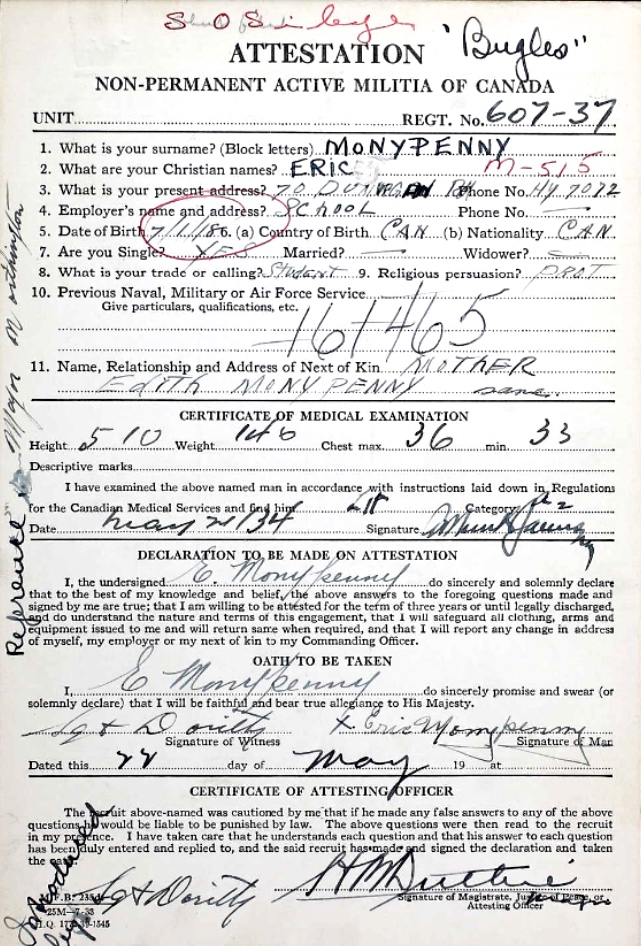 S.O.S.
"Bugles"
ATTESTATION
NON-PERMANENT ACTIVE MILITIA OF CANADA
UNIT REGT. No. 607-37
1. What is your surname? (Block letters) MONYPENNY
2. What are your Christian names? ERIC M-515
3. What is your present address? 70 Phone No. HY 7072
4. Employer's name and address? SCHOOL Phone No. —
5. Date of Birth 7/1/18 6. (a) Country of Birth CAN (b) Nationality CAN
7. Are you Single? YES Married? — Widower? —
8. What is your trade or calling? Student 9. Religious persuasion? PROT
10. Previous Naval, Military or Air Force Service
Give particulars, qualifications, etc.
161465
11. Name, Relationship and Address of Next of Kin MOTHER
EDITH MONYPENNY same.
CERTIFICATE OF MEDICAL EXAMINATION
Height 5 10 Weight 146 Chest max. 36 min. 33
Descriptive marks
I have examined the above named man in accordance with instructions laid down in Regulations
for the Canadian Medical Services and find him Category
Date May 21/34 Signature
DECLARATION TO BE MADE ON ATTESTATION
I, the undersigned E. Monypenny do sincerely and solemnly declare
that to the best of my knowledge and belief, the above answers to the foregoing questions made and
signed by me are true; that I am willing to be attested for the term of three years or until legally discharged,
and do understand the nature and terms of this engagement, that I will safeguard all clothing, arms and
equipment issued to me and will return same when required, and that I will report any change in address
of myself, my employer or my next of kin to my Commanding Officer.
OATH TO BE TAKEN
I, E Monypenny do sincerely promise and swear (or
solemnly declare) that I will be faithful and bear true allegiance to His Majesty.
x Eric Monypenny
Signature of Witness Signature of Man
Dated this 22 day of May 19 at
CERTIFICATE OF ATTESTING OFFICER
The recruit above-named was cautioned by me that if he made any false answers to any of the above
questions he would be liable to be punished by law. The above questions were then read to the recruit
in my presence. I have taken care that he understands each question and that his answer to each question
has been duly entered and replied to, and the said recruit has made and signed the declaration and taken
the oath
Signature of Magistrate, Justice of Peace, or
Attesting Officer
M.F.B. 235
25M—7-33
H.Q. 1772-39-1545
Reference Major Worthington
Introduced by